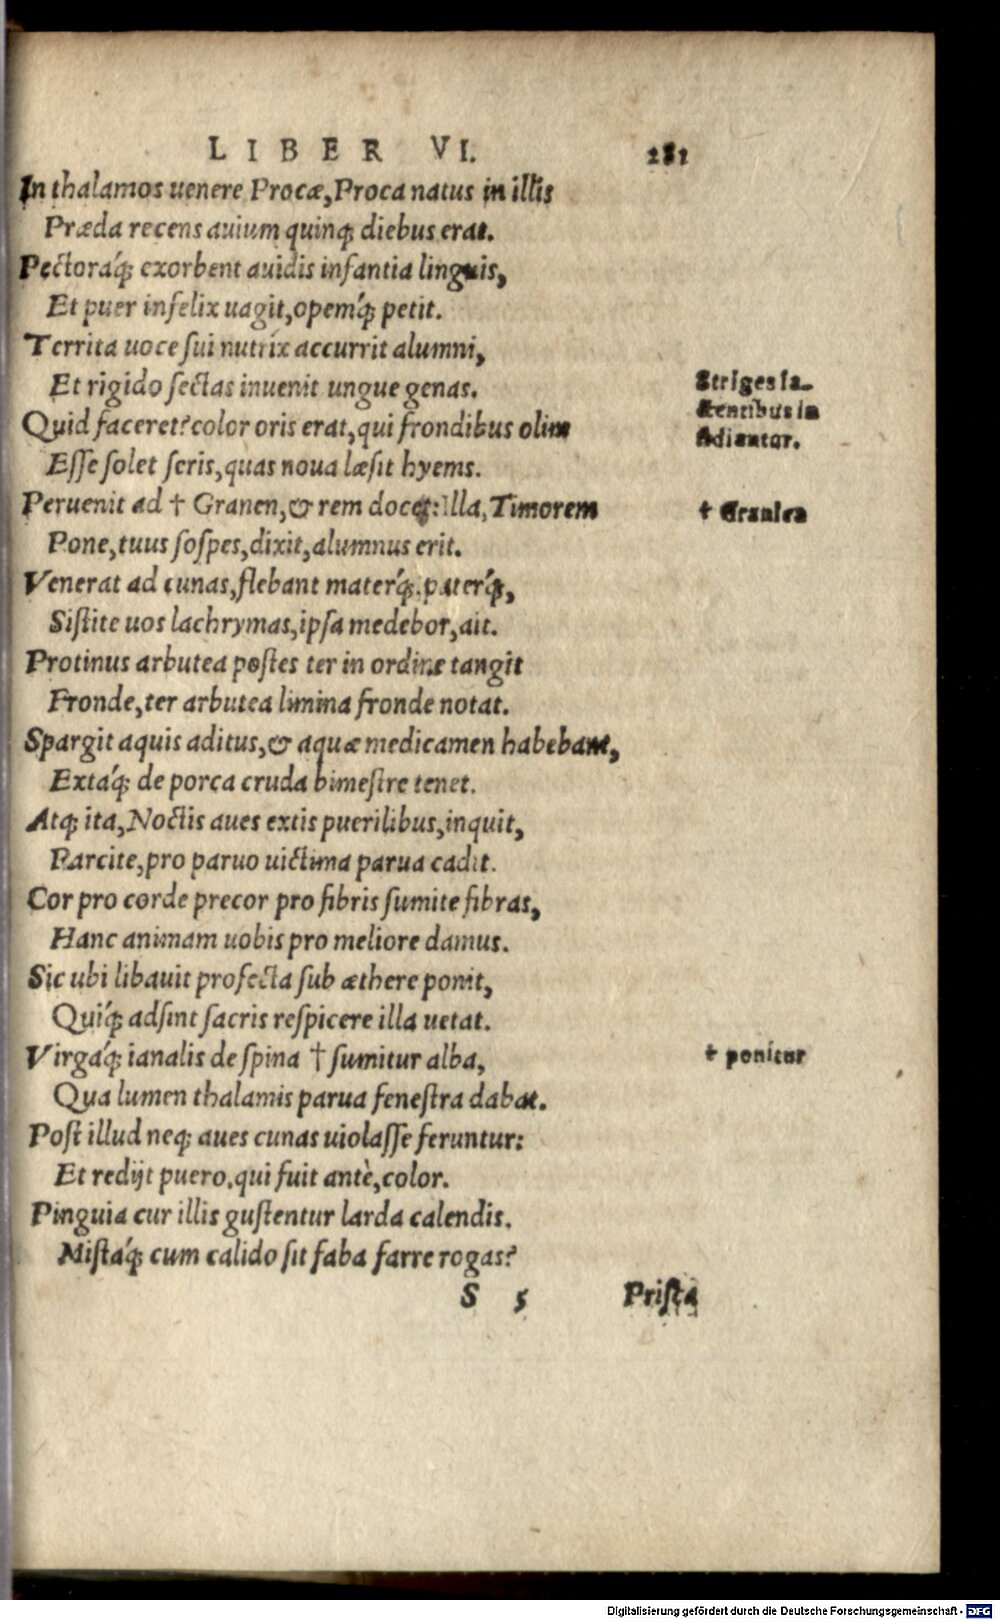 LIBER VI. 281
In thalamos uenere Procæ, Proca natus in illis
Præda recens auium quinq; diebus erat.
Pectoráq; exorbent auidis infantia linguis,
Et puer infelix uagit, opemq́; petit.
Territa uoce sui nutrix accurrit alumni,
Et rigido sectas inuenit ungue genas.
Striges la-
Quid faceret? color oris erat, qui frondibus olim
ctentibus in
sidiantur.
Esse solet seris, quas noua læsit hyems.
Peruenit ad † Granen, & rem docet: Illa, Timorem
† Graniea
Pone, tuus sospes, dixit, alumnus erit.
Venerat ad cunas, flebant materq́; paterq́;,
Sistite uos lachrymas, ipsa medebor, ait.
Protinus arbutea postes ter in ordine tangit
Fronde, ter arbutea limina fronde notat.
Spargit aquis aditus, & aquæ medicamen habebant,
Extáq; de porca cruda bimestre tenet.
Atq; ita, Noctis aues extis puerilibus, inquit,
Parcite, pro paruo uictima parua cadit.
Cor pro corde precor pro fibris sumite fibras,
Hanc animam uobis pro meliore damus.
Sic ubi libauit prosecta sub æthere ponit,
Quíq; adsint sacris respicere illa uetat.
Virgáq; ianalis de spina † sumitur alba,
† ponitur
Qua lumen thalamis parua fenestra dabat.
Post illud neq; aues cunas uiolasse feruntur:
Et redijt puero, qui fuit antè, color.
Pinguia cur illis gustentur larda calendis.
Mistáq; cum calido sit faba farre rogas?
S 5 Prista
Digitalisierung gefördert durch die Deutsche Forschungsgemeinschaft - DFG